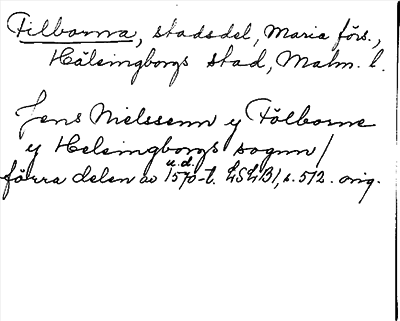 Filborna, stadsdel, Maria förs.,
Hälsingborgs stad, Malm. l.
Jens Nielssenn y Fölborne
y Helsingborgs sognn/
u.d.
förra delen av 1570-t. LSLB1, s. 512. orig.